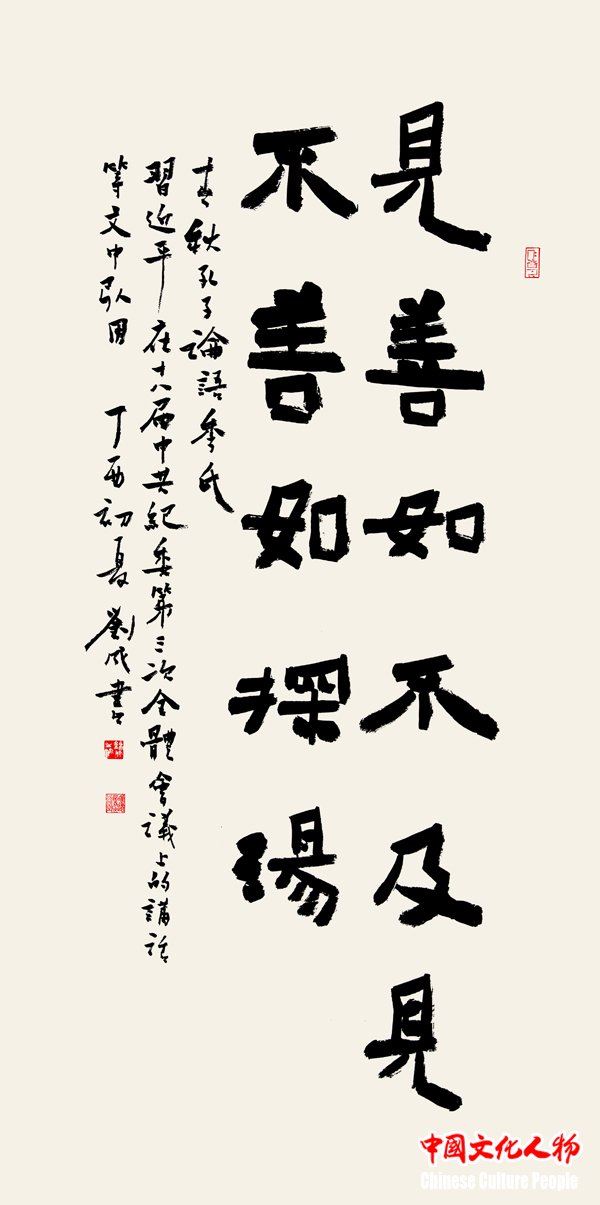 見善如不及見
不善如探湯
春秋孔子論語季氏
習近平在十八届中共紀委第三次全體會議上的講話
等文中引用 丁酉初夏 劉成書
中國文化人物
Chinese Culture People